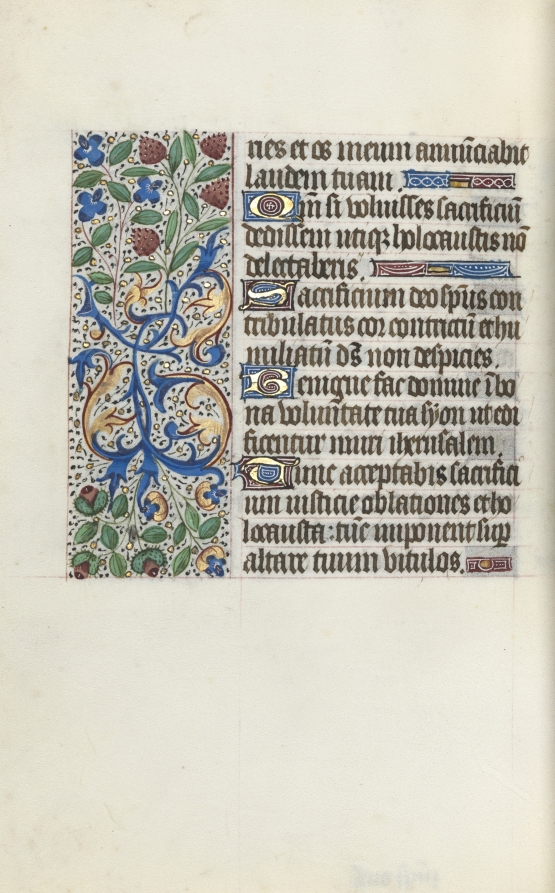 ries et os meum annūciabit
laudem tuam
Qm̄ si voluisses sacrificiū
dedissem utiqꝫ holocaustis nō
delectaberis.
Sacrificium deo sp̄us con
tribulatus cor contritū et hu
miliatū ds̄ non despicies.
Benigne fac domine ī bo
na volūtate tua syon ut edi
ficentur muri iherusalem
Tunc acceptabis sacrifici
um iusticie oblationes et ho
locausta · tūc imponent sup̄
altare tuum vitulos.